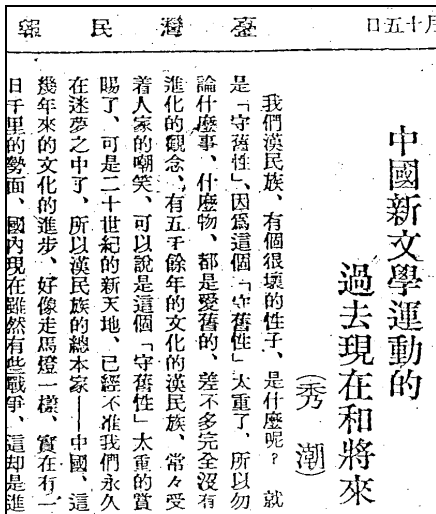 月十五日
臺灣民報
中國新文學運動的
過去現在和將來
(秀潮)
我們漢民族、有個很壞的性子、是什麼呢?就
是「守舊性」、因爲這個「守舊性」太重了、所以勿
論什麼事、什麼物、都是愛舊的、差不多完全沒有
進化的觀念、有五千餘年的文化的漢民族、常々受
着人家的嘲笑、可以說是這個「守舊性」太重的賞
賜了、可是二十世紀的新天地、已經不准我們永久
在迷夢之中了、所以漢民族的總本家——中國、這
幾年來的文化的進步、好像走馬燈一樣、實在有一
日千里的勢面、國內現在雖然有些戰爭、這却是進